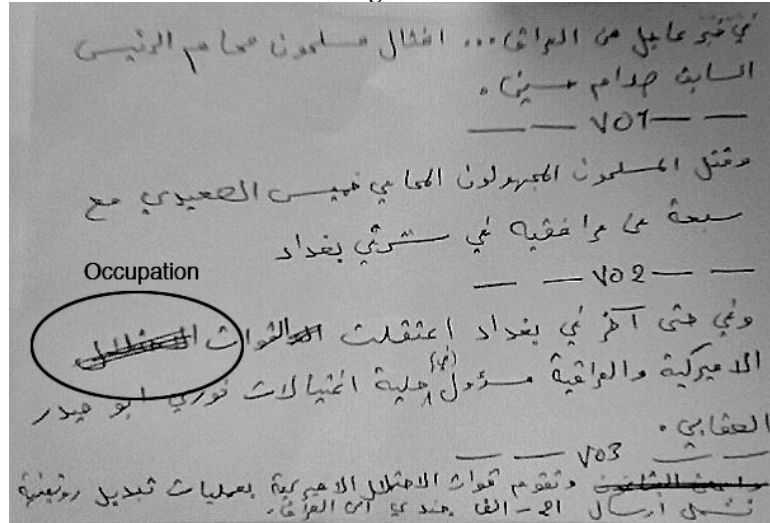 في خبر عاجل من العراق... اغتال مسلحون محامي الرئيس
السابق صدام حسين.
— — VO1 — —
وقتل المسلحون المجهولون المحامي خميس العبيدي مع
سبعة من مرافقيه في شرقي بغداد
— — VO2 — —
Occupation
وفي حي آخر في بغداد اعتقلت القوات الاحتلال
الاميركية والعراقية مسؤول (في) خلية اغتيالات نوري ابو حيدر
العقابي.
— — VO3 — —
وتقوم قوات الاحتلال الاميركية بعمليات تبديل روتينية
تشمل ارسال 21 - الف جندي الى العراق.